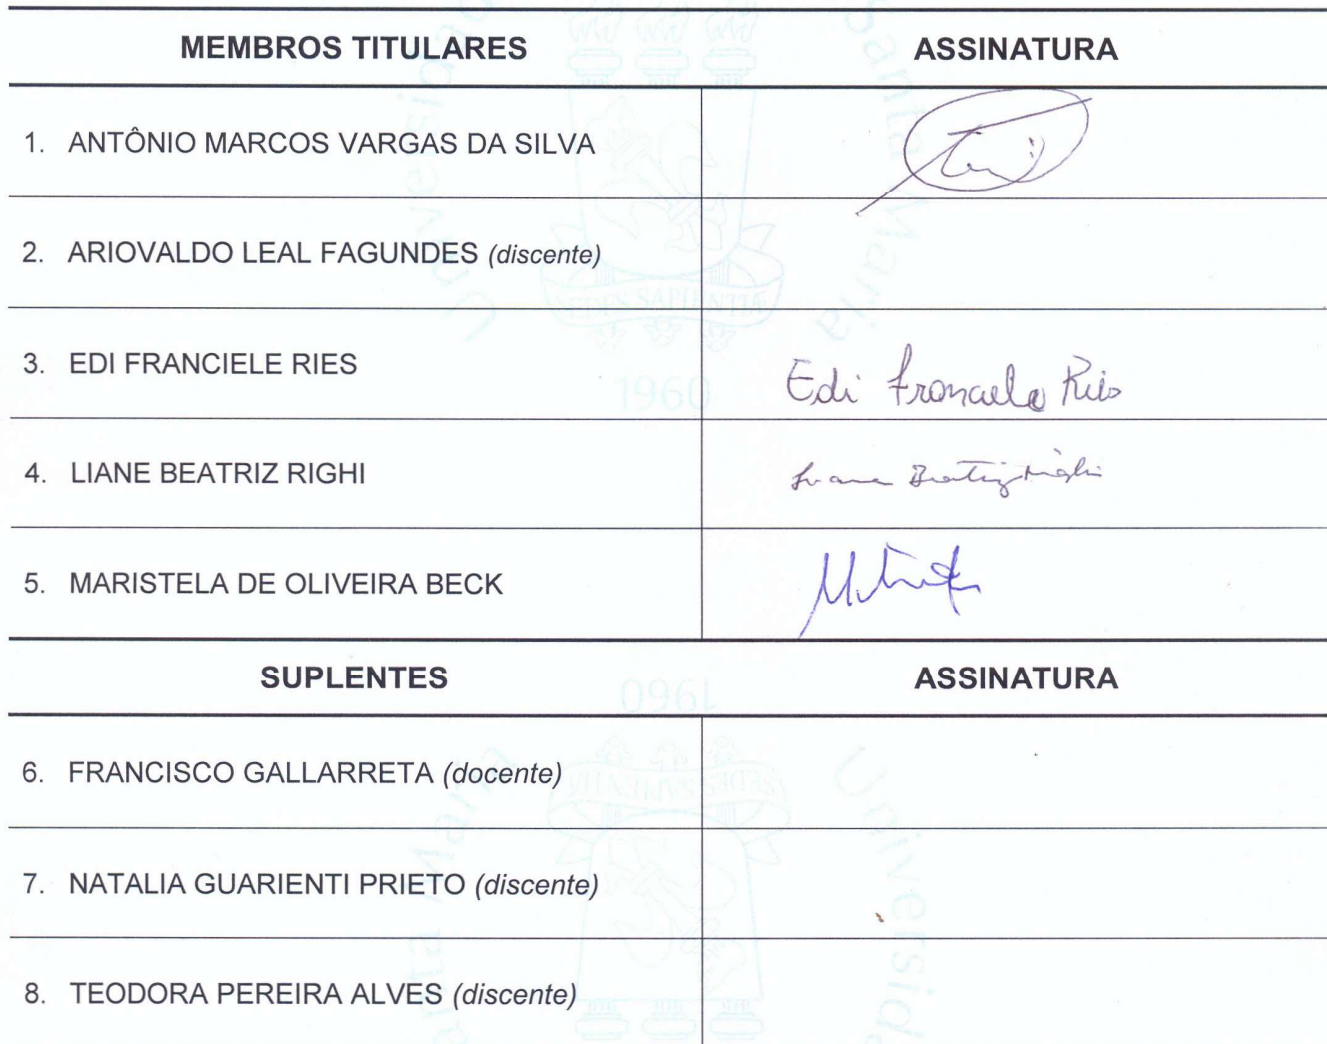 MEMBROS TITULARES ASSINATURA
1. ANTÔNIO MARCOS VARGAS DA SILVA
2. ARIOVALDO LEAL FAGUNDES (discente)
SEDES SAPIENTIÆ
3. EDI FRANCIELE RIES Edi Franciele Ries
1960
4. LIANE BEATRIZ RIGHI Liane Beatriz Righi
5. MARISTELA DE OLIVEIRA BECK
SUPLENTES ASSINATURA
1960
6. FRANCISCO GALLARRETA (docente)
SEDES SAPIENTIÆ
7. NATALIA GUARIENTI PRIETO (discente)
8. TEODORA PEREIRA ALVES (discente)